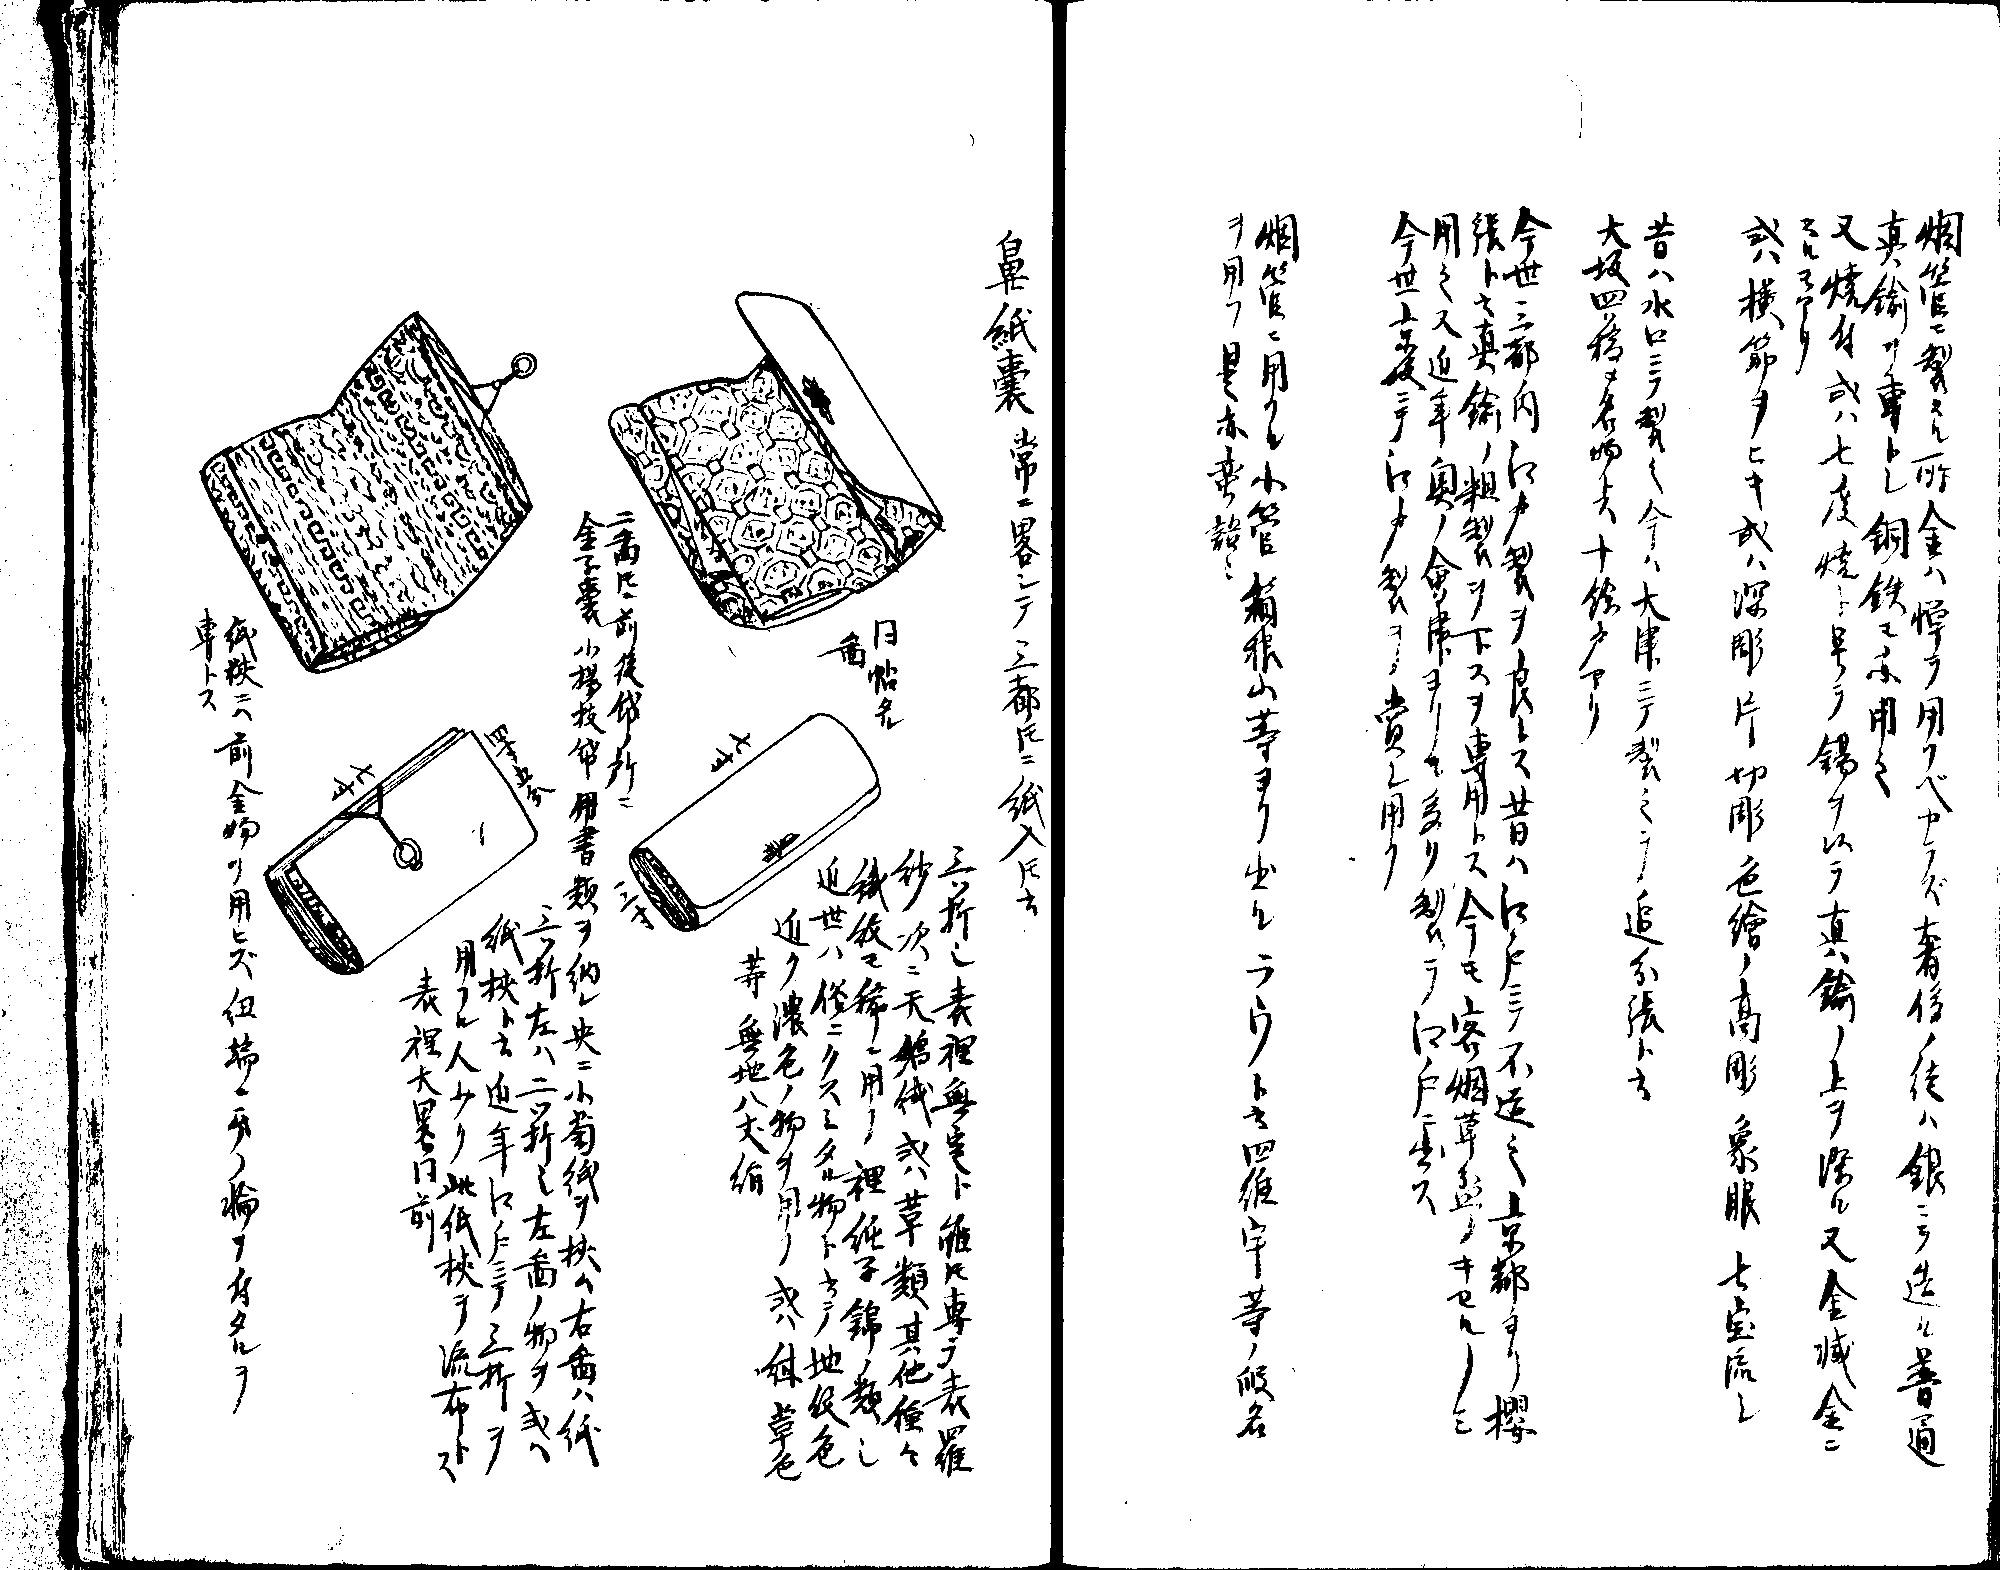 烟管ニ製スル所金ハ憚テ用フベカラズ奢侈ノ徒ハ銀ニテ造ル普通
真鍮ヲ専トシ銅鉄モ亦用之
又焼付或ハ七度焼ト号テ錫ヲ以テ真鍮ノ上ヲ染ル又金滅金ニ
スルモアリ
或ハ横節ヲヒキ或ハ深彫片切彫色絵高彫象眼七宝流シ
昔ハ水口ニテ製之今ハ大津ニテ製之テ追分張ト云
大坂四橋モ名物ト云十余戸アリ
今世三都内江戸製ヲ良トス昔ハ江戸ニテ不造之京都ヨリ櫻
張ト云真鍮ノ粗製ヲ下スヲ専用トス今モ客烟草盆ノキセルニ
用之又近年奥ノ會津ヨリモ多リ製テ江戸ニ出ス
今世京坂ニテ江戸製ヲ賞シ用フ
烟管ニ用フル小管箱根山等ヨリ出ルラウト云四羅宇等ノ仮名
ヲ用フ是亦蛮語
鼻紙嚢 常ニ畧シテ三都トモニ紙入トモ云
三ツ折シ表裡無定ト雖トモ専ラ表羅
紗次ニ天鵞絨或ハ革類其他種々
織紋モ稀ニ用フ裡純子錦ノ類シ
近世ハ俗ニクスミタル物ト云テ地紋色
近ク濃色ノ物ヲ用フ或ハ紺革色
等無地八丈絹
同帖名
圖
七寸
三寸
二圖トモニ前後袋ノ所ニ
金子嚢小楊枝袋用書類ヲ納レ央ニ小菊紙ヲ挟ム右圖ハ紙
三ツ折左ハ二ツ折シ左圖ノ物ヲ或ハ
紙挟ト云近年江戸ニテ三折ヲ
用フル人少ク此紙挟ヲ流布トス
表裡大畧同前
四寸五分
七寸
紙挟ニハ前金物ヲ用ヒズ紐端ニ此ノ輪ヲ付タルヲ
専トス